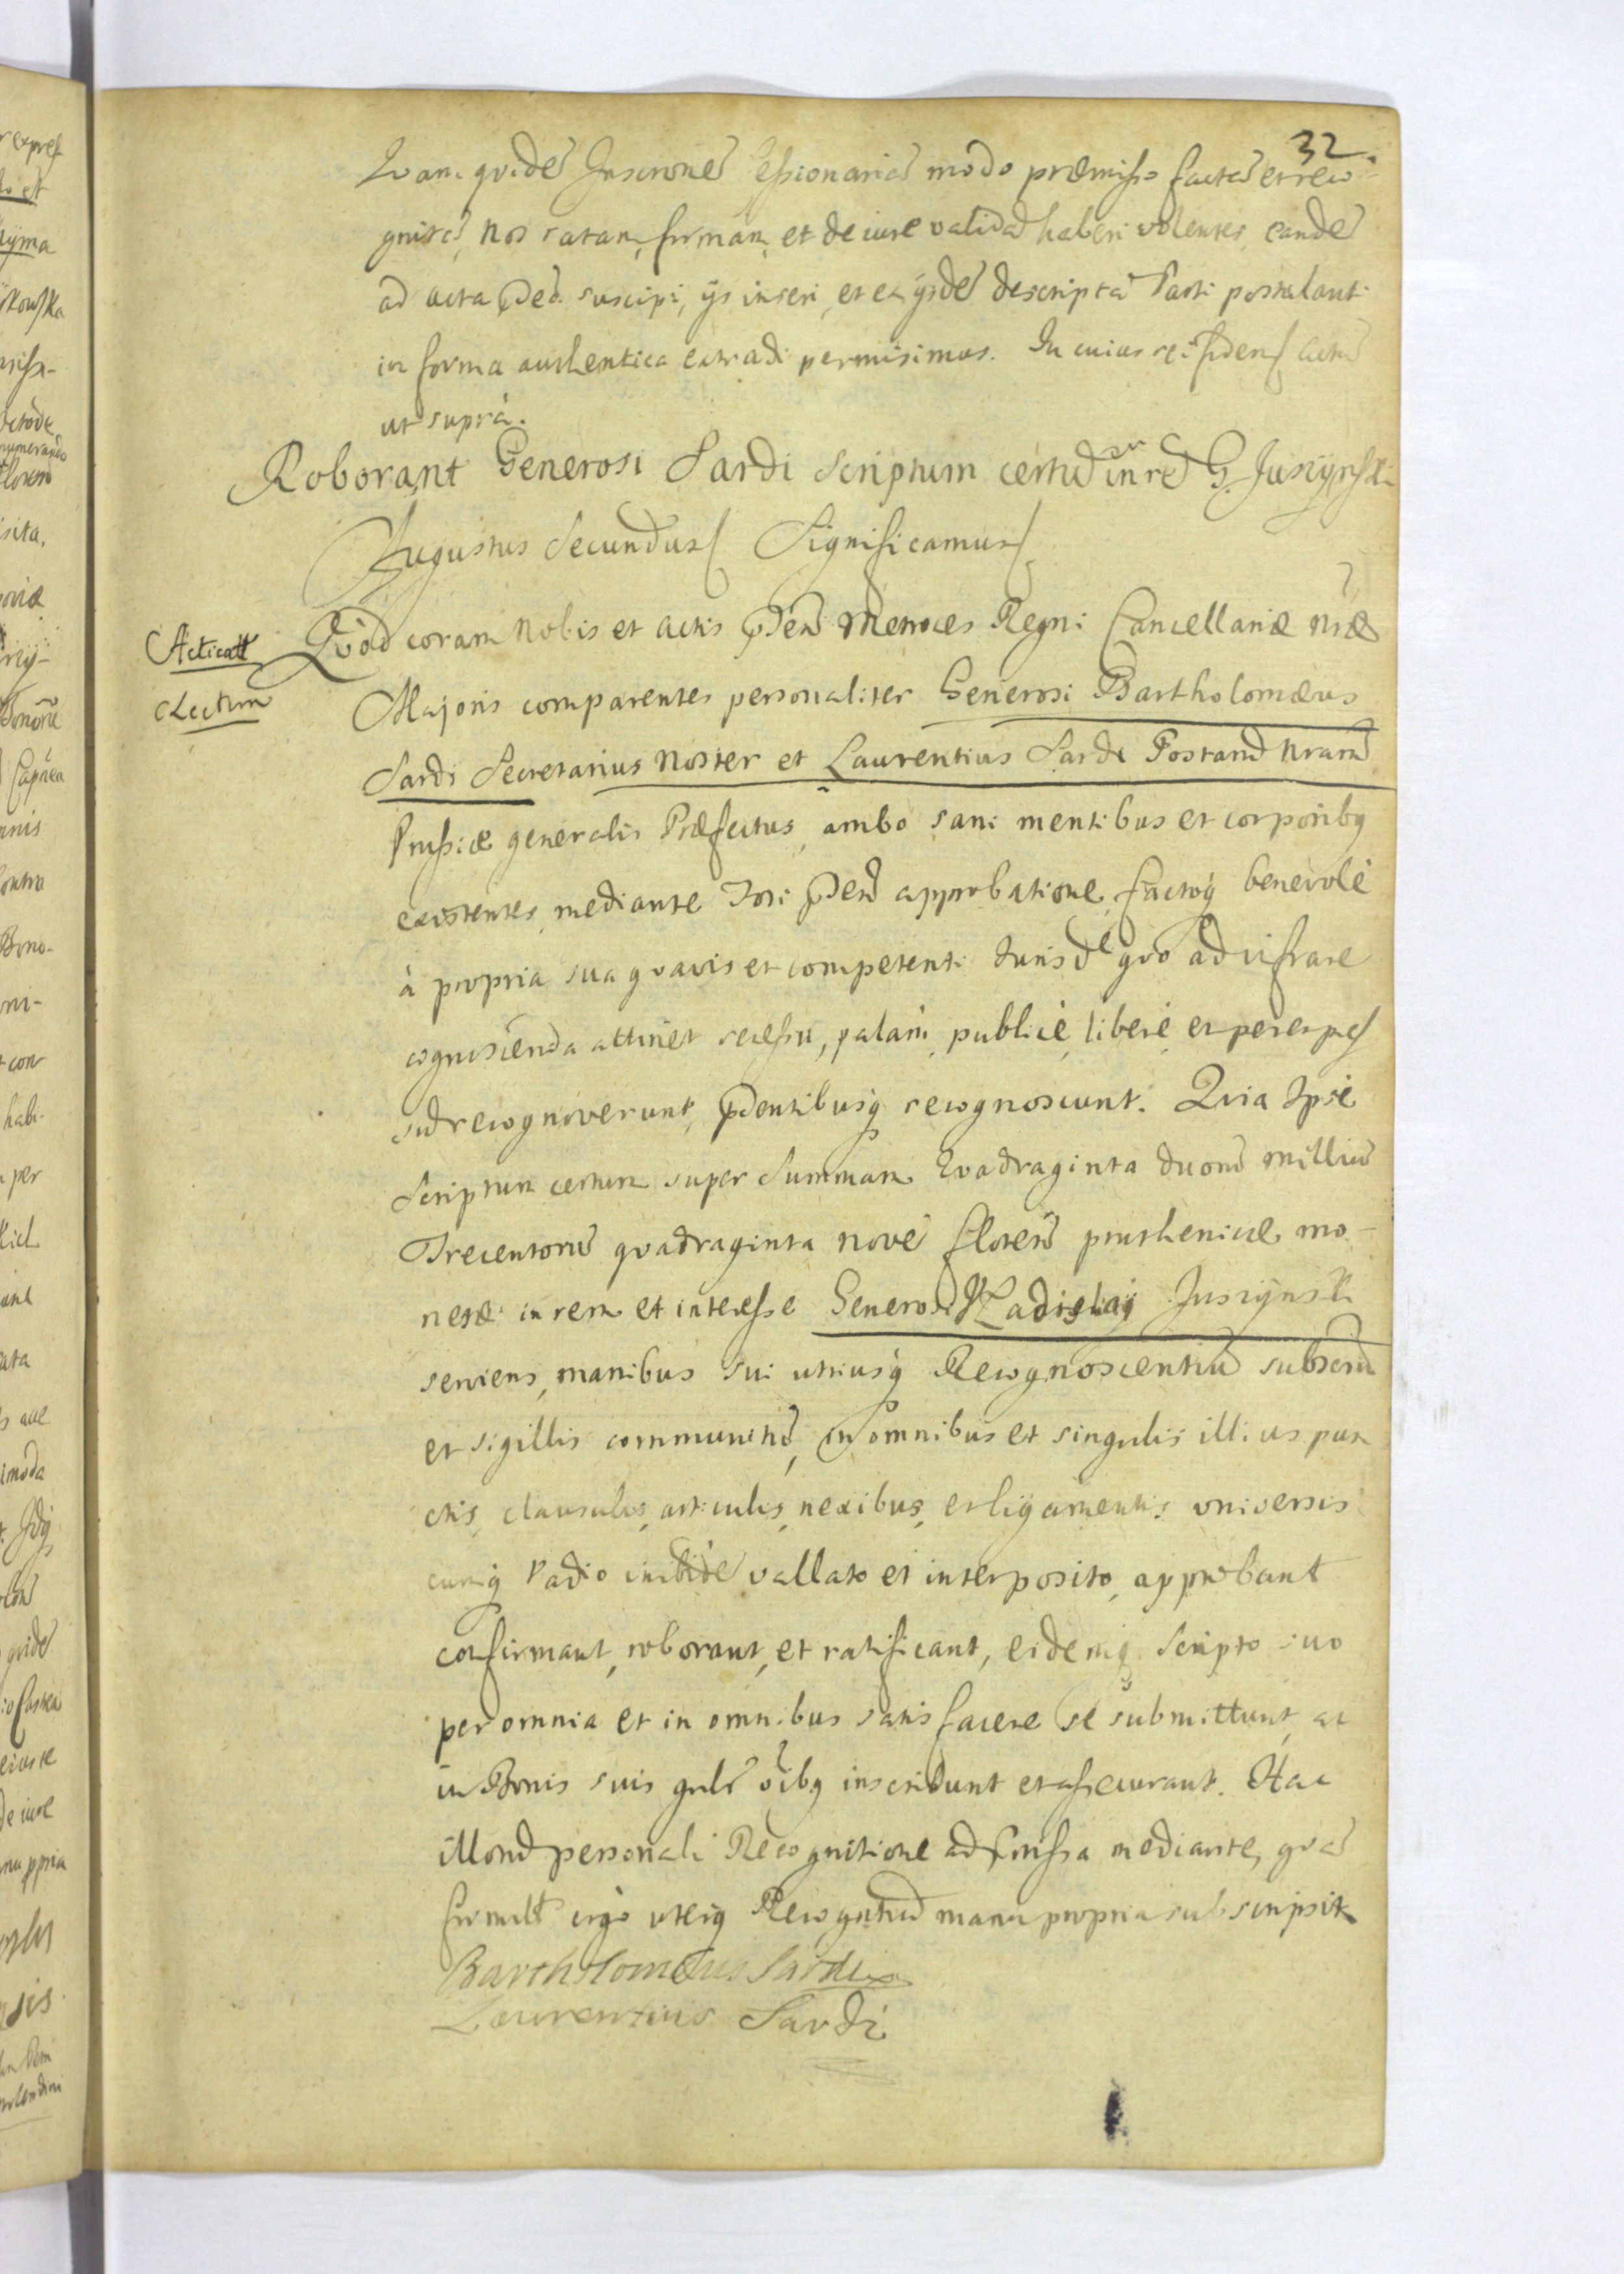 32
Quam quidē Inscronē cessionariā modo præmisso factā et reco-
gnitā, nos ratam, firmam, et de iure validā haberi volentes, eandē
ad acta pńt. suscipi, ijs inseri, et ex ijsdē descriptā Parti postulanti
in forma authentica extradi permisimus. In cuius rei fidem Actū
ut suprà.
Roborant Generosi Sardi Scriptum certū in rē G. Juszÿnski
Augustus Secundus Significamus
Acticatt
Lectum
Quòd coram nobis et Actis pńtibꝫ Metrices Regni Cancellariæ nrǣ
Majoris comparentes personaliter Generosi Bartholomæus
Sardi Secretarius noster et Laurentius Sardi Postarū nrarū
Prussiæ generalis Præfectus, ambo sani mentibus et corporibꝫ
existentes, mediante Fori pńtis approbatione, factoqꝫ benevolè
à propria sua quavis et competenti Jurisdē quo ad infrare
cognoscenda attinet recessu, palàm, publicè, liberè, et per expres
sū recognoverunt, pńtibusqꝫ recognoscunt. Quia Ipsi
Scriptum certum super Summam Quadraginta duorū milliū
Trecentorū quadraginta novē florenorū pruthenicæ mo-
netæ in rem et interesse Generosi Vladislaij Juszÿnski
serviens, manibus sui utriusqꝫ Recognoscentiū subscriptū
et sigillis communitū, in omnibus et singulis illius pun
ctis, clausulis, articulis, nexibus, et ligamentis universis
cumqꝫ Vadio inibidē vallato et interposito, approbant
confirmant, roborant, et ratificant, eidemqꝫ Scripto suo
per omnia et in omnibus satis facere se submittunt, ac
in Bonis suis gnlr oībꝫ inscribunt et assecurant. Hac
illorū personali Recognitione ad præmissa mediante, quā
ergò uterqꝫ Recogntiū manu propria subscripsit
Bartholomæus Sardi
Laurentius Sardi